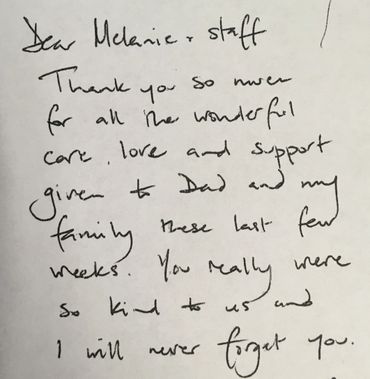 Dear Melanie + staff
Thank you so much
for all the wonderful
care, love and support
given to Dad and my
family these last few
weeks. You really were
so kind to us and
I will never forget you.